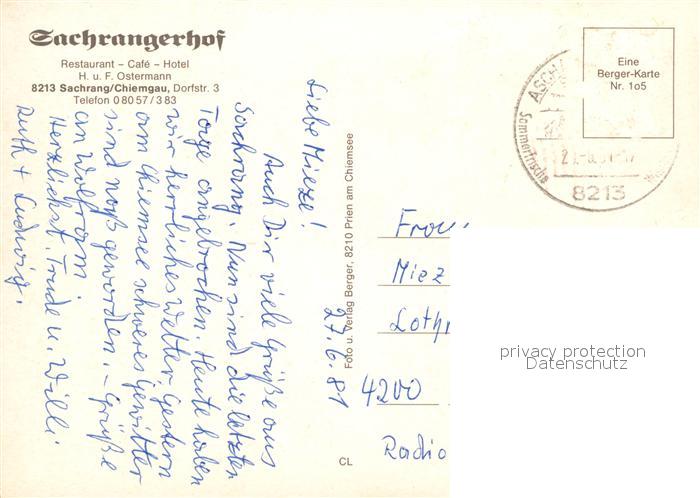 Sachrangerhof
Restaurant – Café – Hotel
H. u. F. Ostermann
8213 Sachrang/Chiemgau, Dorfstr. 3
Telefon 0 80 57 / 3 83
27.6.81
Liebe Mieze!
Auch Dir viele Grüße aus
Sachrang. Nun sind die letzten
Tage angebrochen. Heute haben
wir herrliches Wetter. Gestern
am Chiemsee schweres Gewitter
sind naß geworden. – Grüße
an Wolfram.
Herzlichst Trude u. Willi
Ruth + Ludwig.
Foto u. Verlag Berger, 8210 Prien am Chiemsee
CL
Eine
Berger-Karte
Nr. 1o5
ASCHA
Sommerfrische
8213
Frau
Miez
Loth
4200
Radio
privacy protection
Datenschutz